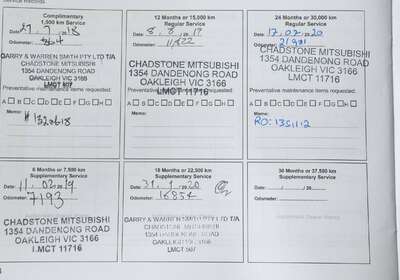 Service Records
Complimentary
1,500 km Service
Date: 27 / 7 / 2018
Odometer:
GARRY & WARREN SMITH PTY LTD T/A
CHADSTONE MITSUBISHI
1354 DANDENONG ROAD
OAKLEIGH VIC 3166
LMCT 507
Preventative maintenance items requested:
A B C D E F G H
Memo:
# 1320618
12 Months or 15,000 km
Regular Service
Date: 8 / 8 / 2019
Odometer: 11822
CHADSTONE MITSUBISHI
1354 DANDENONG ROAD
OAKLEIGH VIC 3166
LMCT 11716
Preventative maintenance items requested:
A B C D E F G H
Memo:
24 Months or 30,000 km
Regular Service
Date: 17 / 02 / 2020
Odometer:
CHADSTONE MITSUBISHI
1354 DANDENONG ROAD
OAKLEIGH VIC 3166
LMCT 11716
Preventative maintenance items requested:
A B C D E F G H
Memo:
RO: 135112
6 Months or 7,500 km
Supplementary Service
Date: 11 / 02 / 2019
Odometer: 7193
CHADSTONE MITSUBISHI
1354 DANDENONG ROAD
OAKLEIGH VIC 3166
LMCT 11716
18 Months or 22,500 km
Supplementary Service
Date: 31 / 1 / 2020
Odometer: 16854
GARRY & WARREN SMITH PTY LTD T/A
CHADSTONE MITSUBISHI
1354 DANDENONG ROAD
OAKLEIGH VIC 3166
LMCT 507
30 Months or 37,500 km
Supplementary Service
Date: / / 20
Odometer: